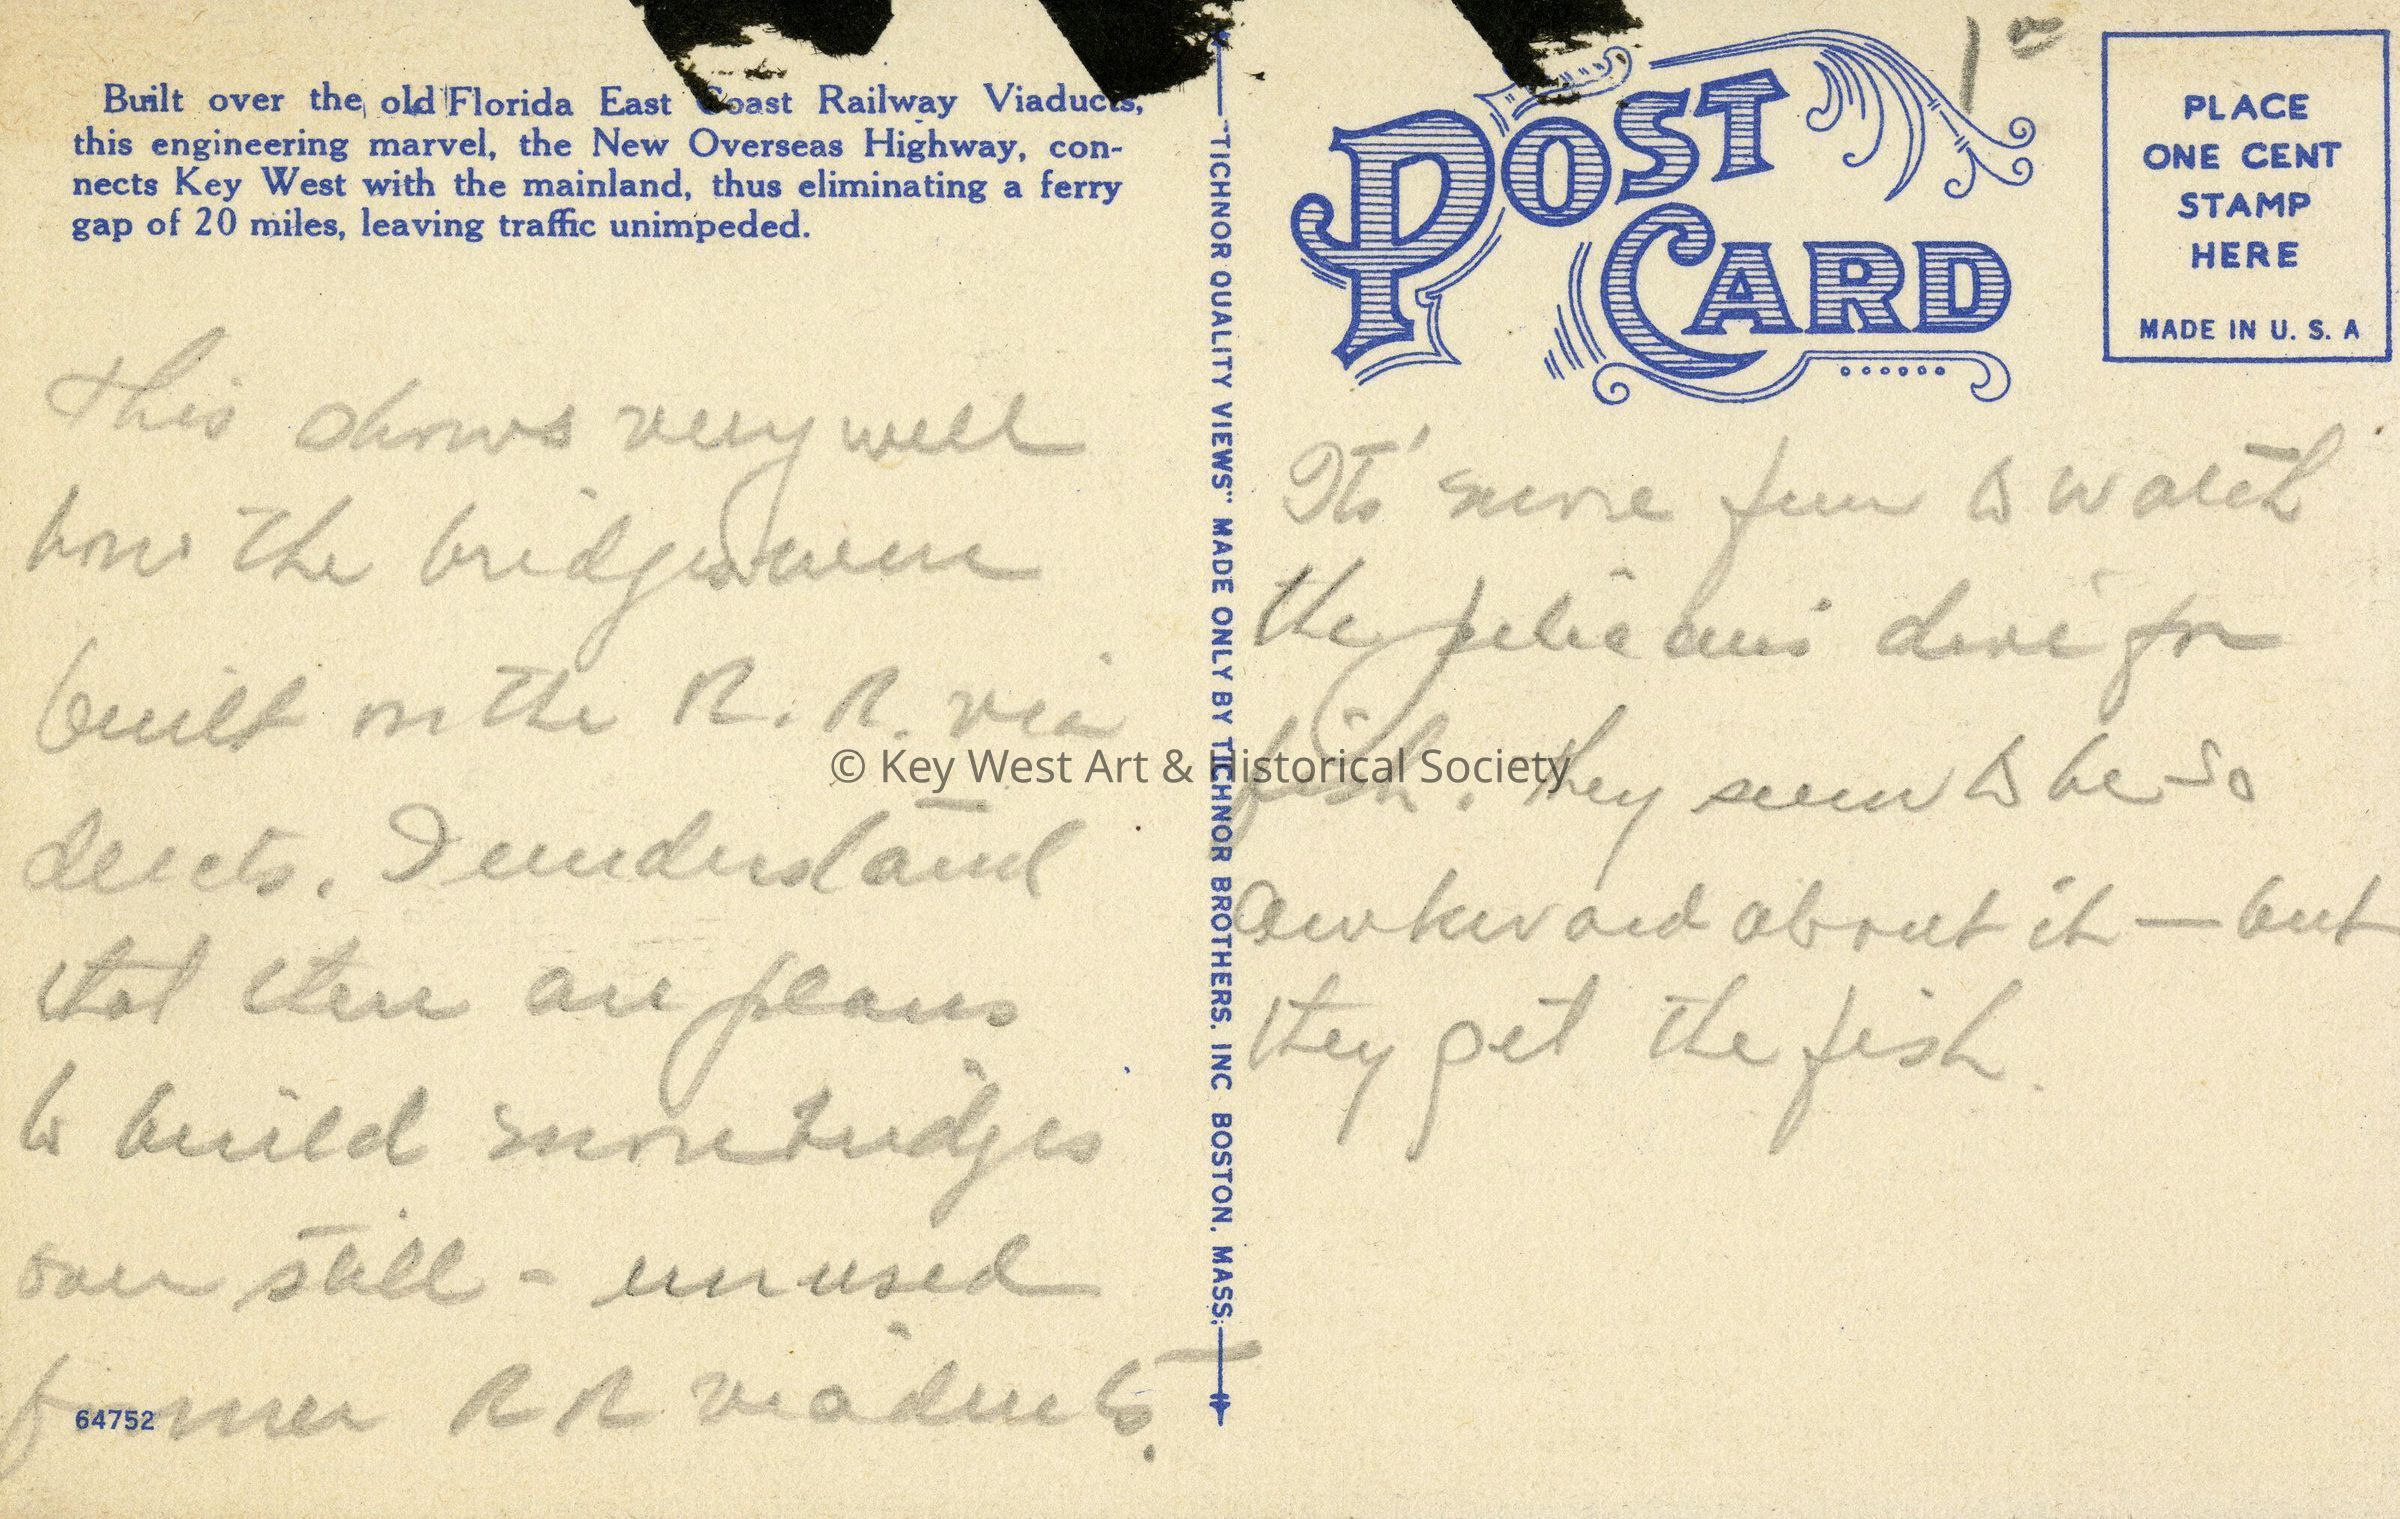 Built over the old Florida East Coast Railway Viaducts,
this engineering marvel, the New Overseas Highway, con-
nects Key West with the mainland, thus eliminating a ferry
gap of 20 miles, leaving traffic unimpeded.
This shows very well
how the bridges were
built on the R. R. via
ducts. I understand
that there are plans
to build more bridges
over still - unused
former R R viaducts.
64752
"TICHNOR QUALITY VIEWS" MADE ONLY BY TICHNOR BROTHERS. INC BOSTON. MASS.
POST
CARD
1 00
PLACE
ONE CENT
STAMP
HERE
MADE IN U. S. A
Its' sure fun to watch
the pelicans dive for
fish. They seem to be so
awkward about it — but
they get the fish.
© Key West Art & Historical Society